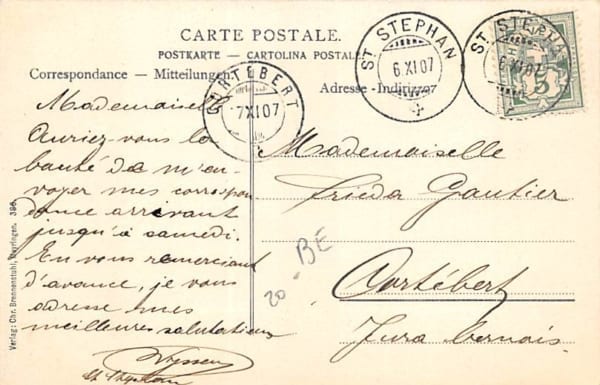 CARTE POSTALE.
POSTKARTE — CARTOLINA POSTALE
Correspondance — Mitteilungen
Adresse - Indirizzo
ST. STEPHAN
6.XI.07
ST. STEPHAN
6.XI.07
5
CORTÉBERT
7.XI.07
Mademoiselle
Auriez-vous la
bonté de m'en-
voyer mes correspon
dance arrivant
jusqu'à samedi.
En vous remerciant
d'avance, je vous
adresse mes
meilleures salutations
Mademoiselle
Frieda Gautier
Cortébert
Jura bernois.
BE
20
Verlag: Chr. Brennenstuhl, Meiringen. 386